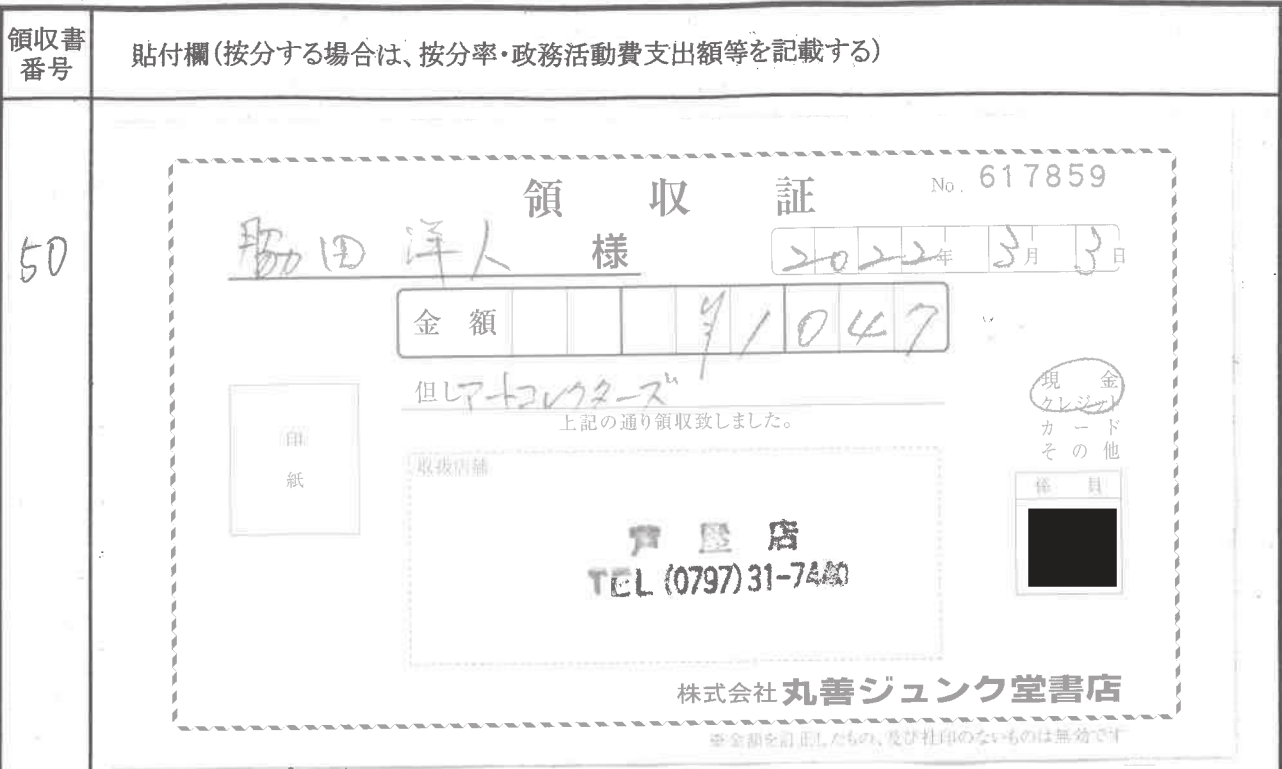 領収書
番号
貼付欄(按分する場合は、按分率・政務活動費支出額等を記載する)
50
領 収 証
No. 617859
脇田 洋人 様
2022年 3月 3日
金 額 ¥1047
但しアートコレクターズ
上記の通り領収致しました。
現 金
クレジット
カ ー ド
そ の 他
印
紙
取扱店舗
係 員
芦 屋 店
TEL (0797)31-7440
株式会社丸善ジュンク堂書店
※金額を訂正したもの、及び社印のないものは無効です